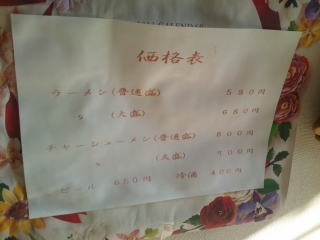 CALENDAR
価格表
ラーメン(普通盛) 580円
〃 (大盛) 680円
チャーシューメン(普通盛) 800円
〃 (大盛) 900円
ビール 650円 冷酒 400円